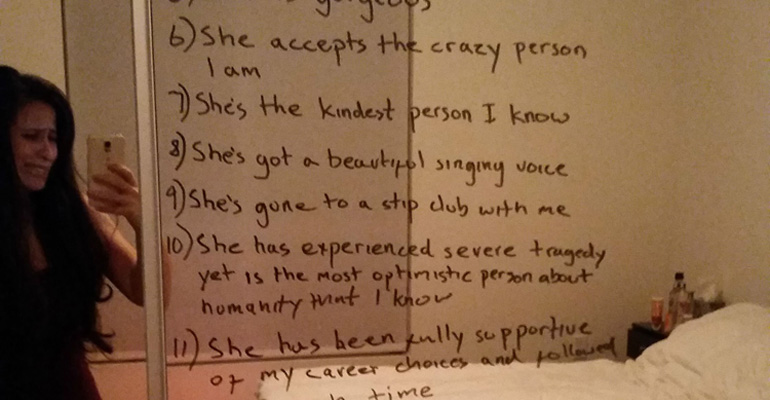 gorgeous
6) She accepts the crazy person
I am
7) She's the kindest person I know
8) She's got a beautiful singing voice
9) She's gone to a stip club with me
10) She has experienced severe tragedy
yet is the most optimistic person about
humanity that I know
11) She has been fully supportive
of my career choices and followed
time